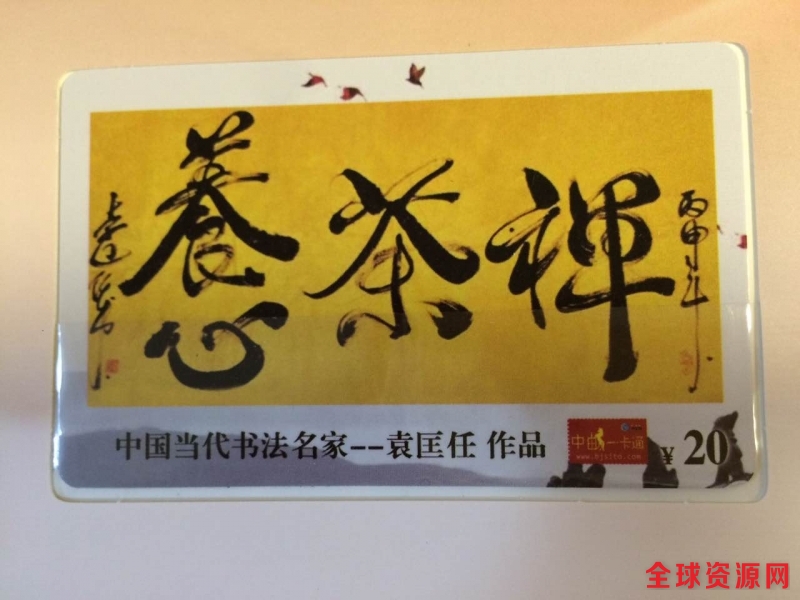 禅茶養心
丙申年
中国当代书法名家--袁匡任 作品
中由一卡通
www.bjsino.com
¥ 20
全球资源网